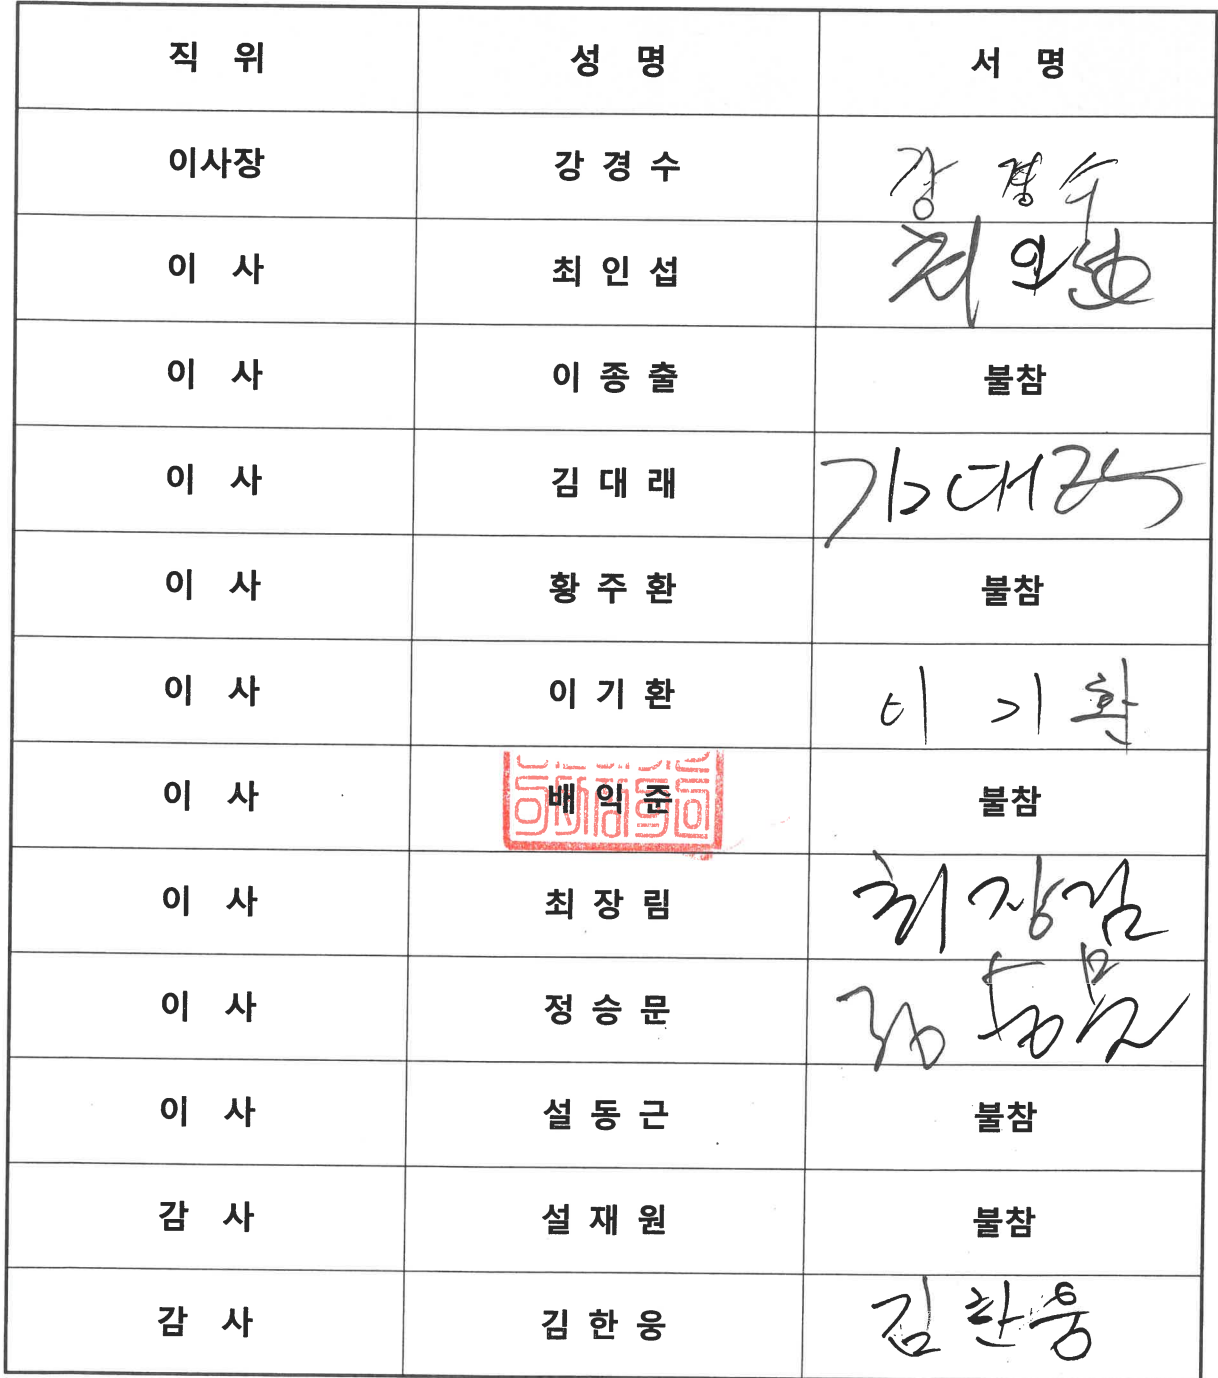 직 위 성 명 서 명
이사장 강 경 수 강 경 수
이 사 최 인 섭 최 인 섭
이 사 이 종 출 불참
이 사 김 대 래 김 대 래
이 사 황 주 환 불참
이 사 이 기 환 이 기 환
이 사 배 익 준 불참
이 사 최 장 림 최 장 림
이 사 정 승 문 정 승 문
이 사 설 동 근 불참
감 사 설 재 원 불참
감 사 김 한 웅 김 한 웅